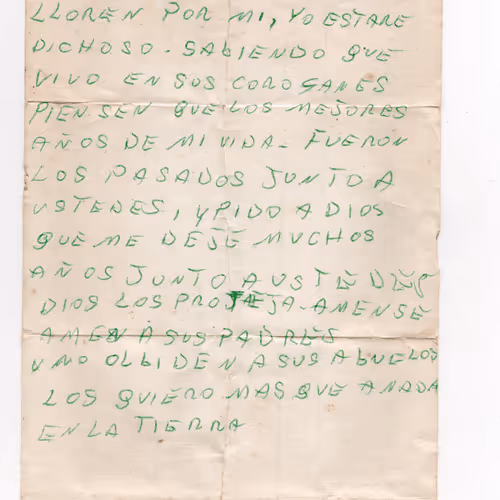 LLOREN POR MI, YO ESTARE
DICHOSO. SABIENDO QUE
VIVO EN SUS COROSANES
PIENSEN QUE LOS MEJORES
AÑOS DE MI VIDA. FUERON
LOS PASADOS JUNTO A
USTEDES, Y PIDO A DIOS
QUE ME DEJE MUCHOS
AÑOS JUNTO A USTEDES
DIOS LOS PROTEJA. AMENSE
AMEN A SUS PADRES
Y NO OLBIDEN A SUS ABUELOS
LOS QUIERO MAS QUE A NADA
EN LA TIERRA